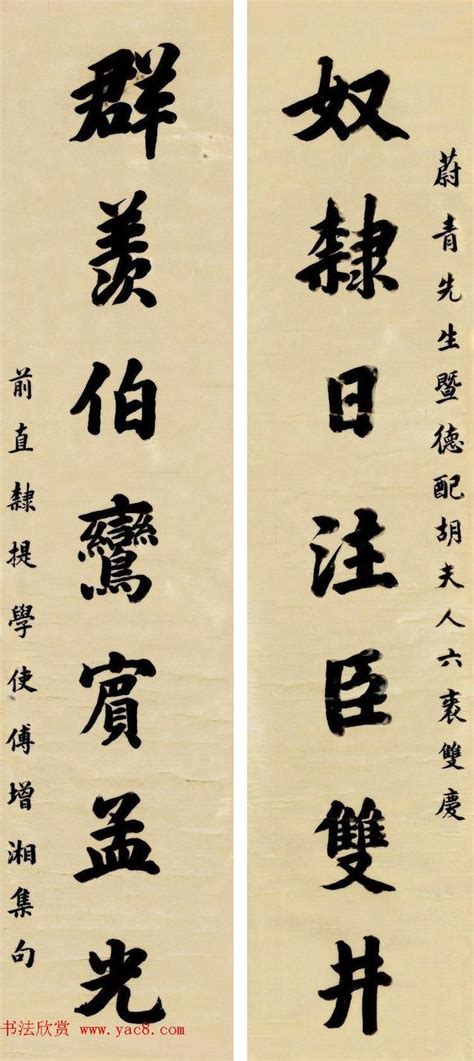 蔚青先生暨德配胡夫人六袠雙慶
奴隸日注臣雙井
群羨伯鸞賓孟光
前直隸提學使傅增湘集句
书法欣赏 www.yac8.com